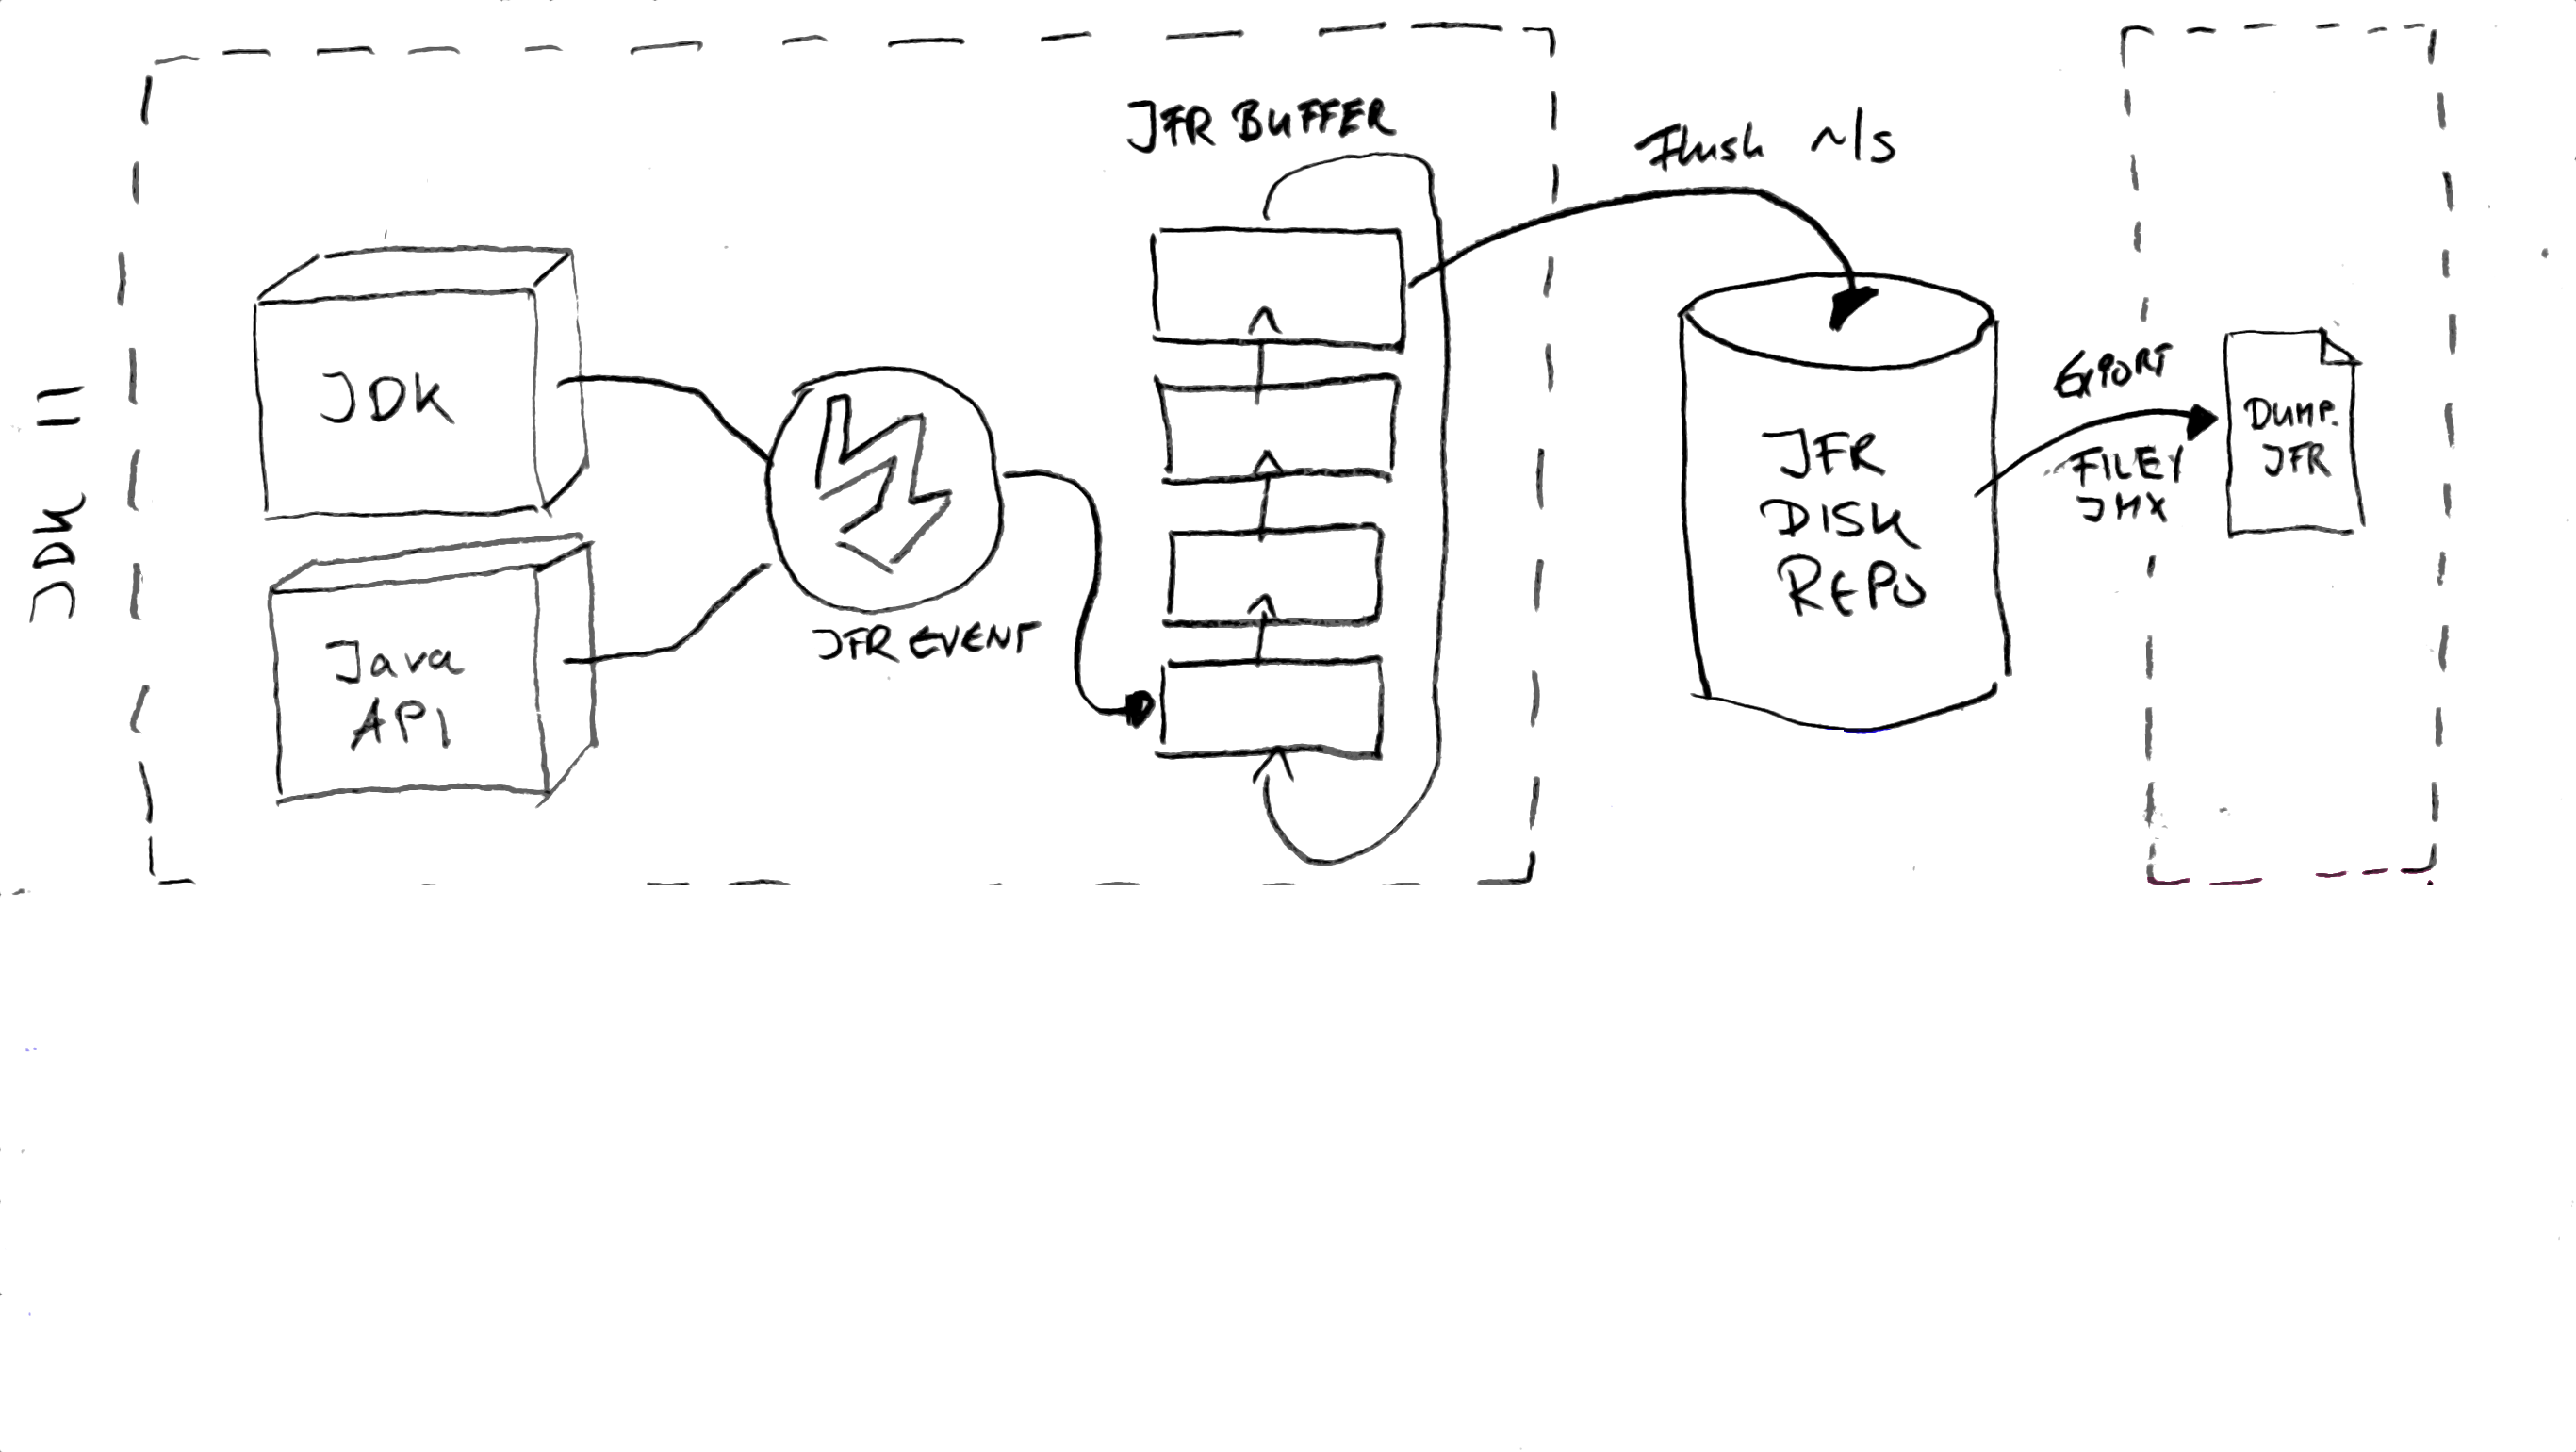 JDK 11
JDK
Java
API
JFR EVENT
JFR BUFFER
Flush ~1s
JFR
DISK
REPO
EXPORT
FILE/
JMX
DUMP.
JFR